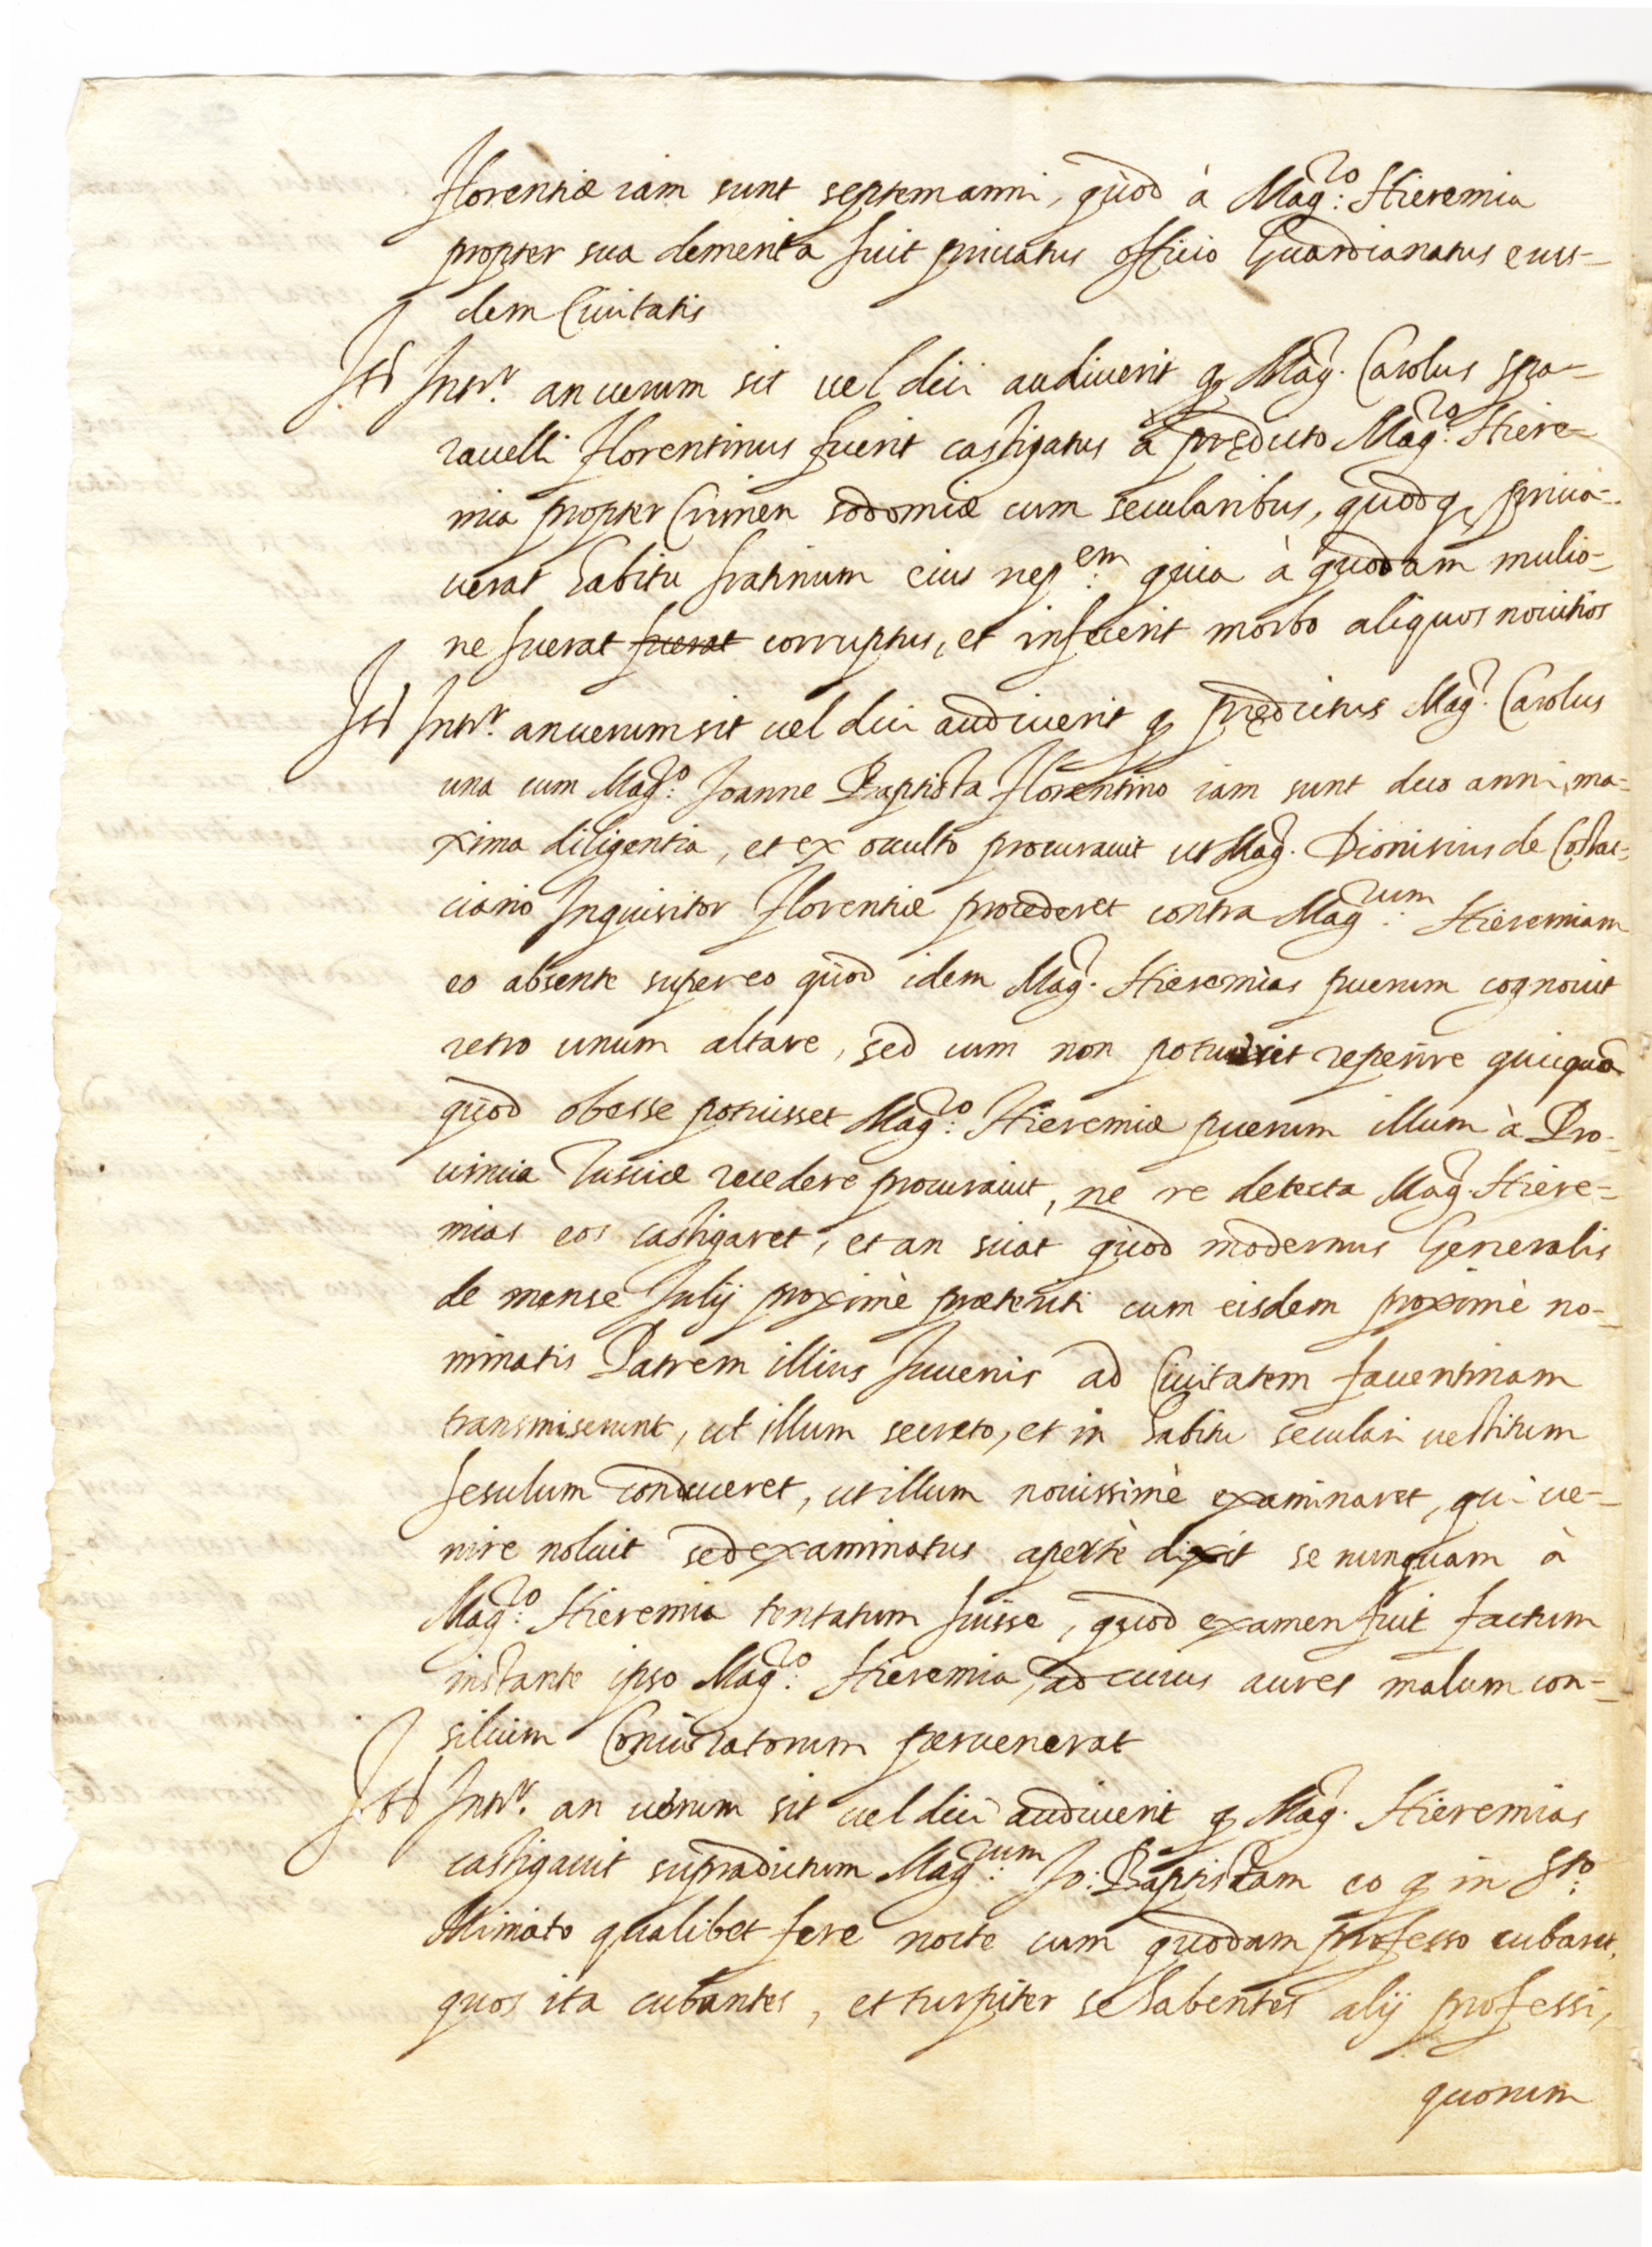 Florentiæ iam sunt septem anni, quod à Mag:ro Hieremia
propter sua demerita fuit priuatus officio Guardianatus eius-
dem Ciuitatis
Itē Intr. an uerum sit uel dici audiuerit q Mag. Carolus spa-
rauelli Florentinus fuerit castigatus à prędicto Mag:ro Hiere-
mia propter Crimen sodomiæ cum secularibus, quodq, priua-
uerat habitu fratrinum eius nep:em quia à quodam mulio-
ne fuerat fuerat corruptus, et infecerit morbo aliquos nouitios
Itē Intr. an uerum sit uel dici audiuerit q prędictus Mag. Carolus
una cum Mag:ro Joanne Baptista Florentino iam sunt duo anni, ma-
xima diligentia, et ex occulto procurauit ut Mag. Dionisius de Costac-
ciario Inquisitor Florentiæ procederet contra Mag:rum Hieremiam
eo absente super eo quod idem Mag. Hieremias puerum cognouit
retro unum altare, sed cum non potuerit reperire quicquā
quod obesse potuisset Mag:ro Hieremiæ puerum illum à Pro-
uincia Tusciæ recedere procurauit, ne re detecta Mag. Hiere-
mias eos castigaret, et an sciat quod modernus Generalis
de mense Julij proximè præteriti cum eisdem proximè no-
minatis Patrem illius Juuenis ad Ciuitatem fauentinam
transmiserunt, ut illum secreto, et in habitu seculari uestitum
fesulum conduceret, ut illum nouissimè examinaret, qui ue-
nire noluit sed examinatus apertè dixit se nunquam à
Mag:ro Hieremia tentatum fuisse, quod examen fuit factum
instante ipso Mag:ro Hieremia, ad cuius aures malum con-
silium Coniuratorum peruenerat
Itē Intr. an uerum sit uel dici audiuerit q Mag. Hieremias
castigauit supradictum Mag:rum Jo: Baptistam eo q in S:to
Miniato qualibet fere nocte cum quodam professo cubaret,
quos ita cubantes, et turpiter se habentes alij professi,
quorum